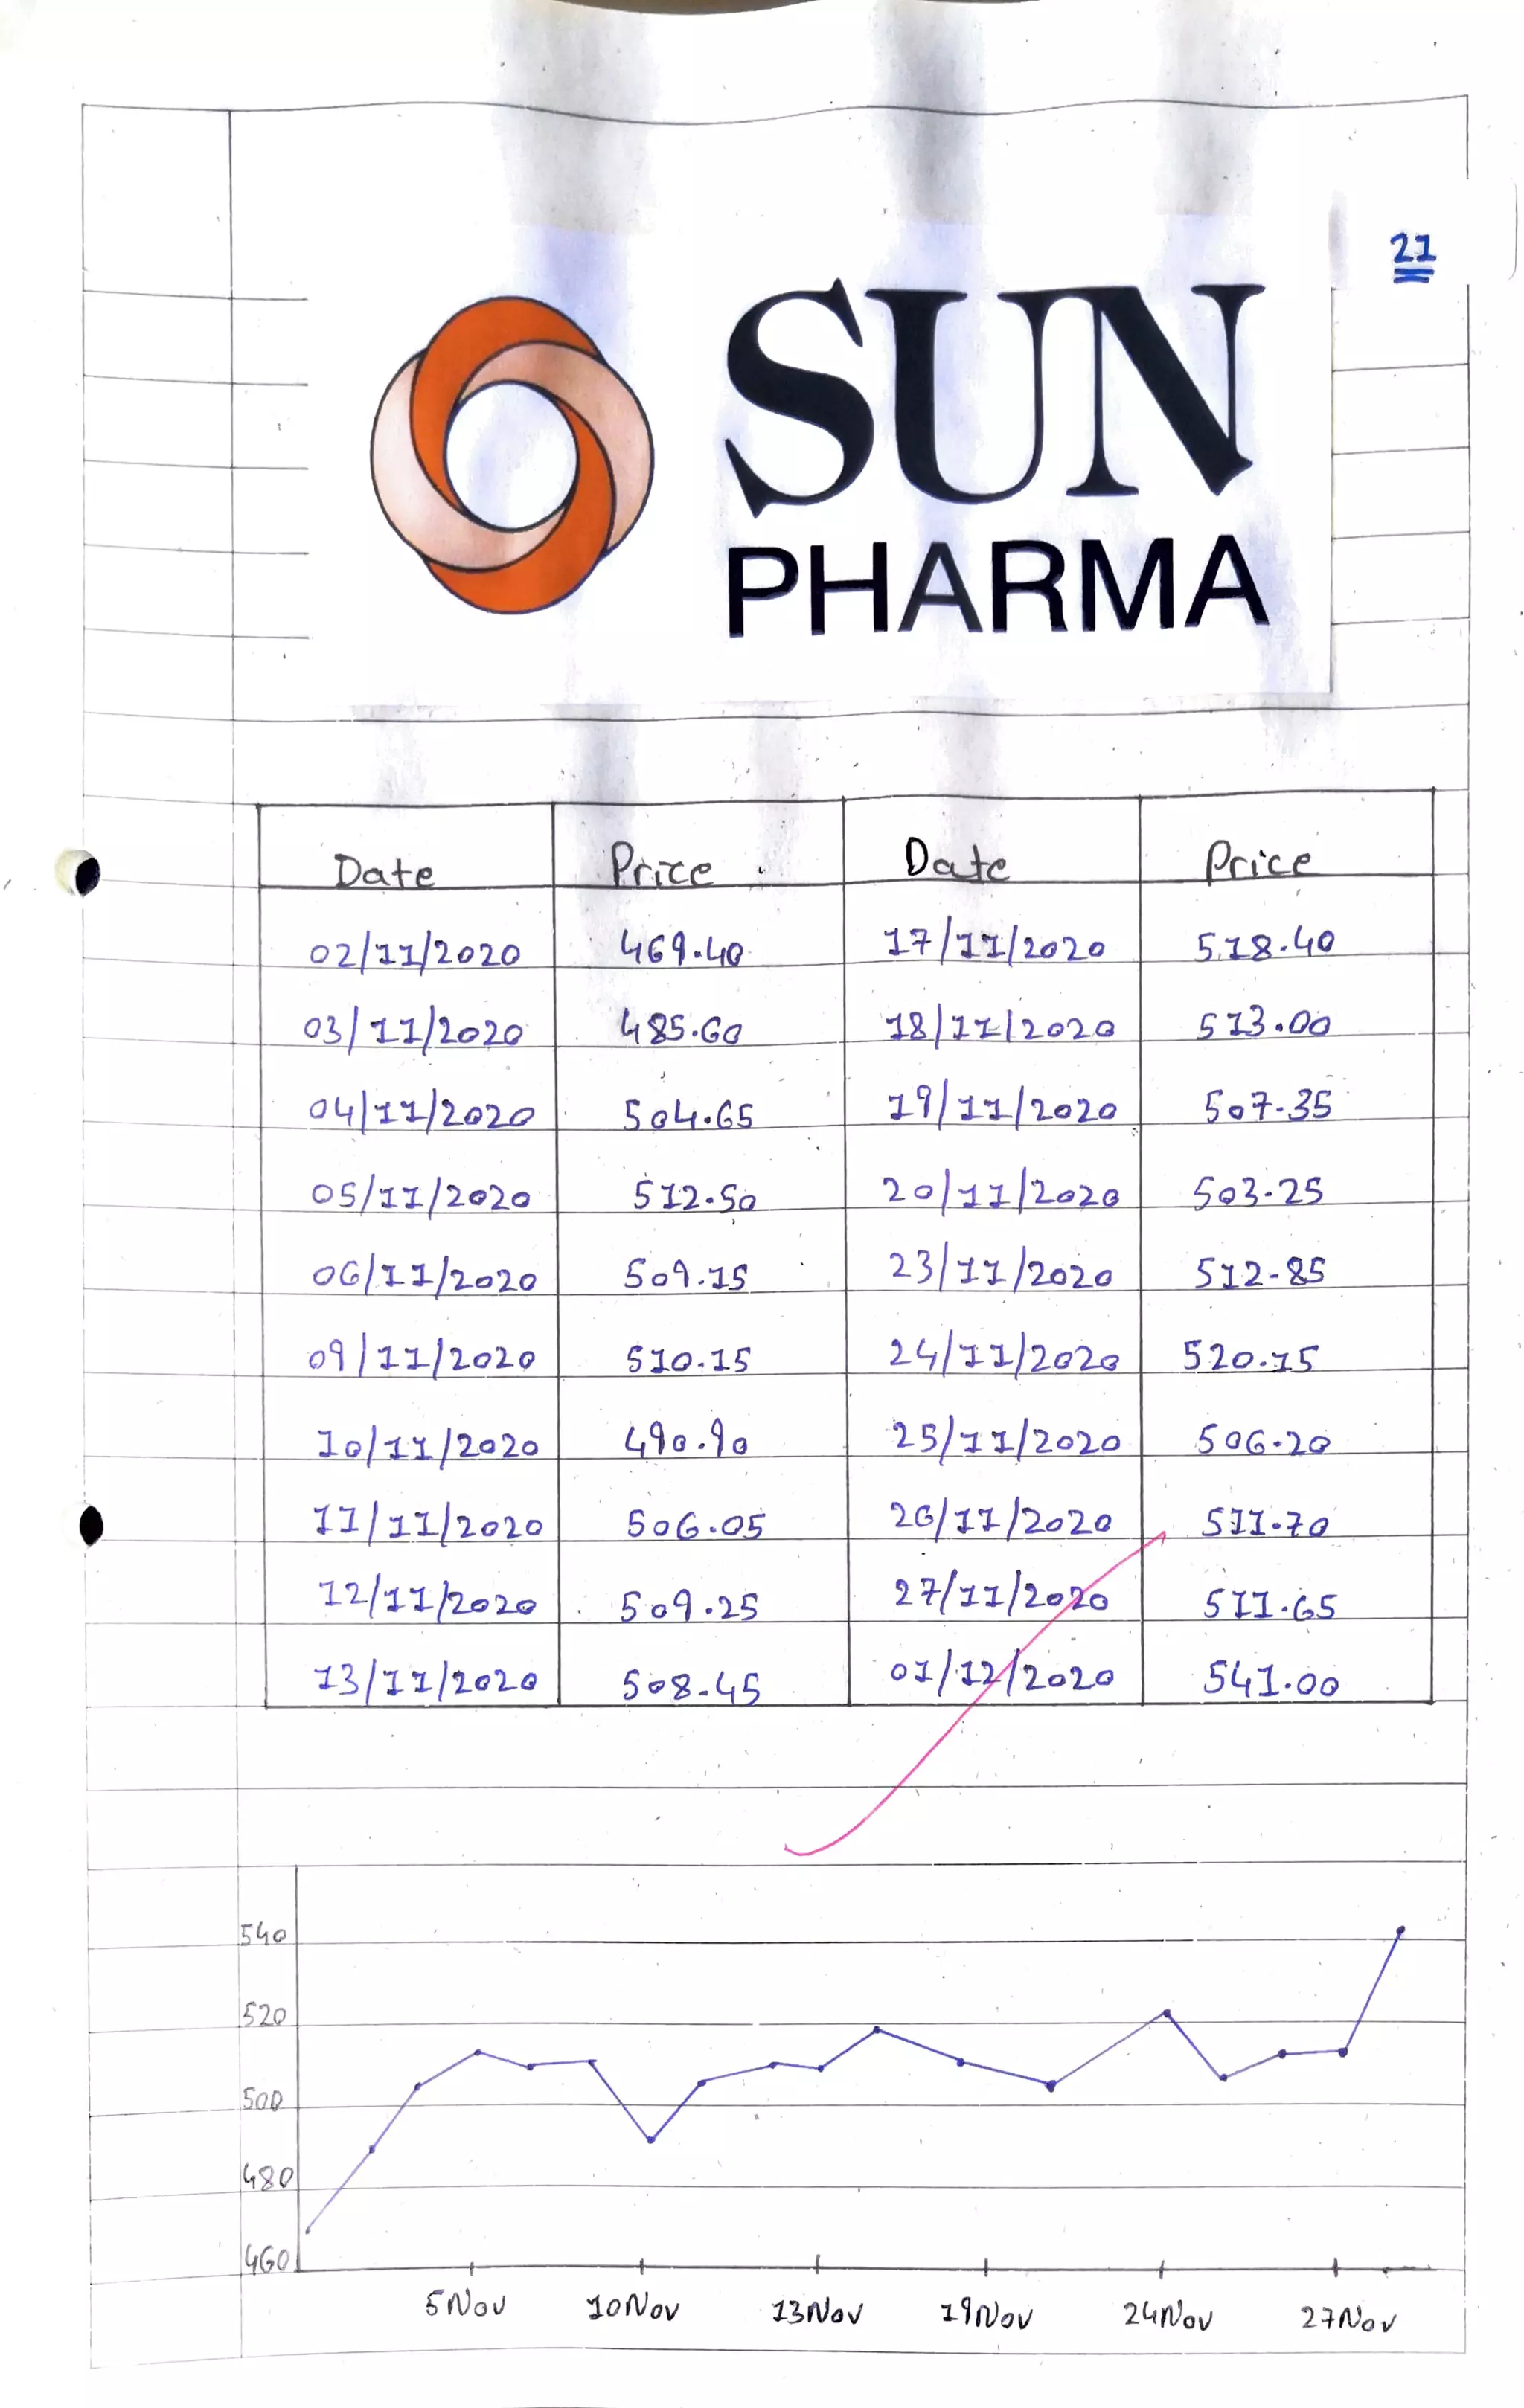 21
SUN
PHARMA
Date Price Date Price
02/11/2020 469.40 17/11/2020 518.40
03/11/2020 485.60 18/11/2020 513.00
04/11/2020 504.65 19/11/2020 507.35
05/11/2020 512.50 20/11/2020 503.25
06/11/2020 509.15 23/11/2020 512.85
09/11/2020 510.15 24/11/2020 520.15
10/11/2020 490.90 25/11/2020 506.20
11/11/2020 506.05 26/11/2020 511.70
12/11/2020 509.25 27/11/2020 511.65
13/11/2020 508.45 01/12/2020 541.00
540
520
500
480
460
5Nov 10Nov 13Nov 19Nov 24Nov 27Nov